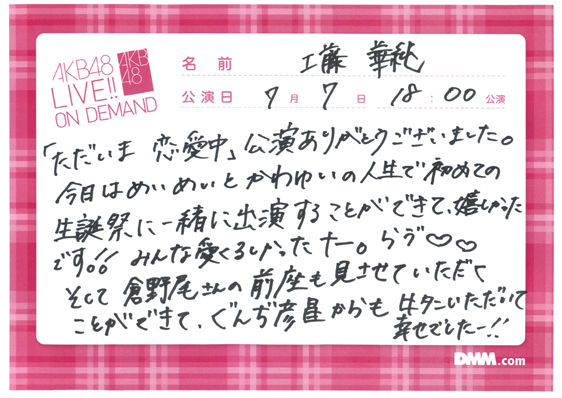 AKB48
LIVE!!
ON DEMAND
AKB
48
名前 工藤 華純
公演日 7月7日 18:00公演
「ただいま 恋愛中」公演ありがとうございました。
今日はめいめいとかわゆいの人生で初めての
生誕祭に一緒に出演することができて、嬉しかった
です!! みんな愛くるしかったナー。らぶ♡♡
そして倉野尾さんの前座も見させていただく
ことができて、ぐんぢ彦星からも 牛タンいただいて
幸せでしたー!!
DMM.com